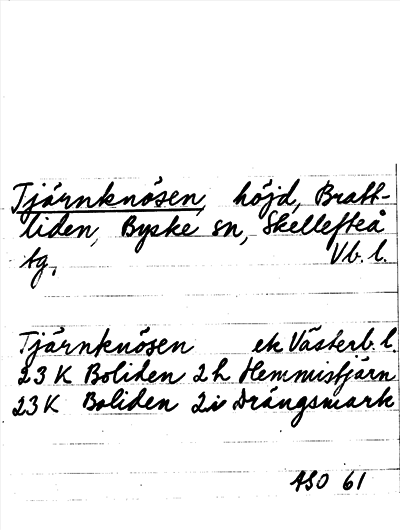 Tjärnknösen, höjd, Bratt-
liden, Byske sn, Skellefteå
tg, Vb. l.
Tjärnknösen ek Västerb. l.
23 K Boliden 2 h Hemmistjärn
23 K Boliden 2 i Drängsmark
ASO 61